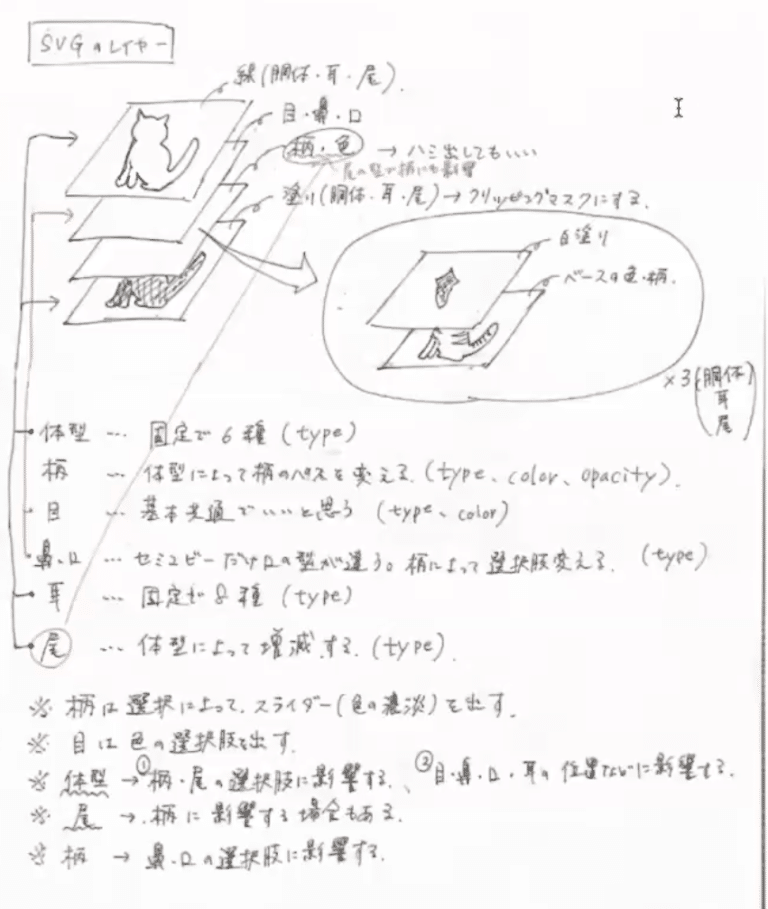 SVGのレイヤー
線(胴体・耳・尾)
目・鼻・口
柄・色 → ハミ出してもいい
尾の型が柄にも影響
塗り(胴体・耳・尾) → クリッピングマスクにする。
白塗り
ベースの色・柄。
×3(胴体
耳
尾)
体型 … 固定で6種 (type)
柄 … 体型によって柄のパスを変える。(type、color、opacity)。
目 … 基本共通でいいと思う (type、color)
鼻・口 … セミコビーだけ口の型が違う。柄によって選択肢変える。 (type)
耳 … 固定で8種 (type)
尾 … 体型によって増減する。(type)
※ 柄は選択によって、スライダー(色の濃淡)を出す。
※ 目は色の選択肢を出す。
※ 体型 → ①柄・尾の選択肢に影響する。、 ②目・鼻・口・耳の位置などに影響する。
※ 尾 → 柄に影響する場合もある。
※ 柄 → 鼻・口の選択肢に影響する。